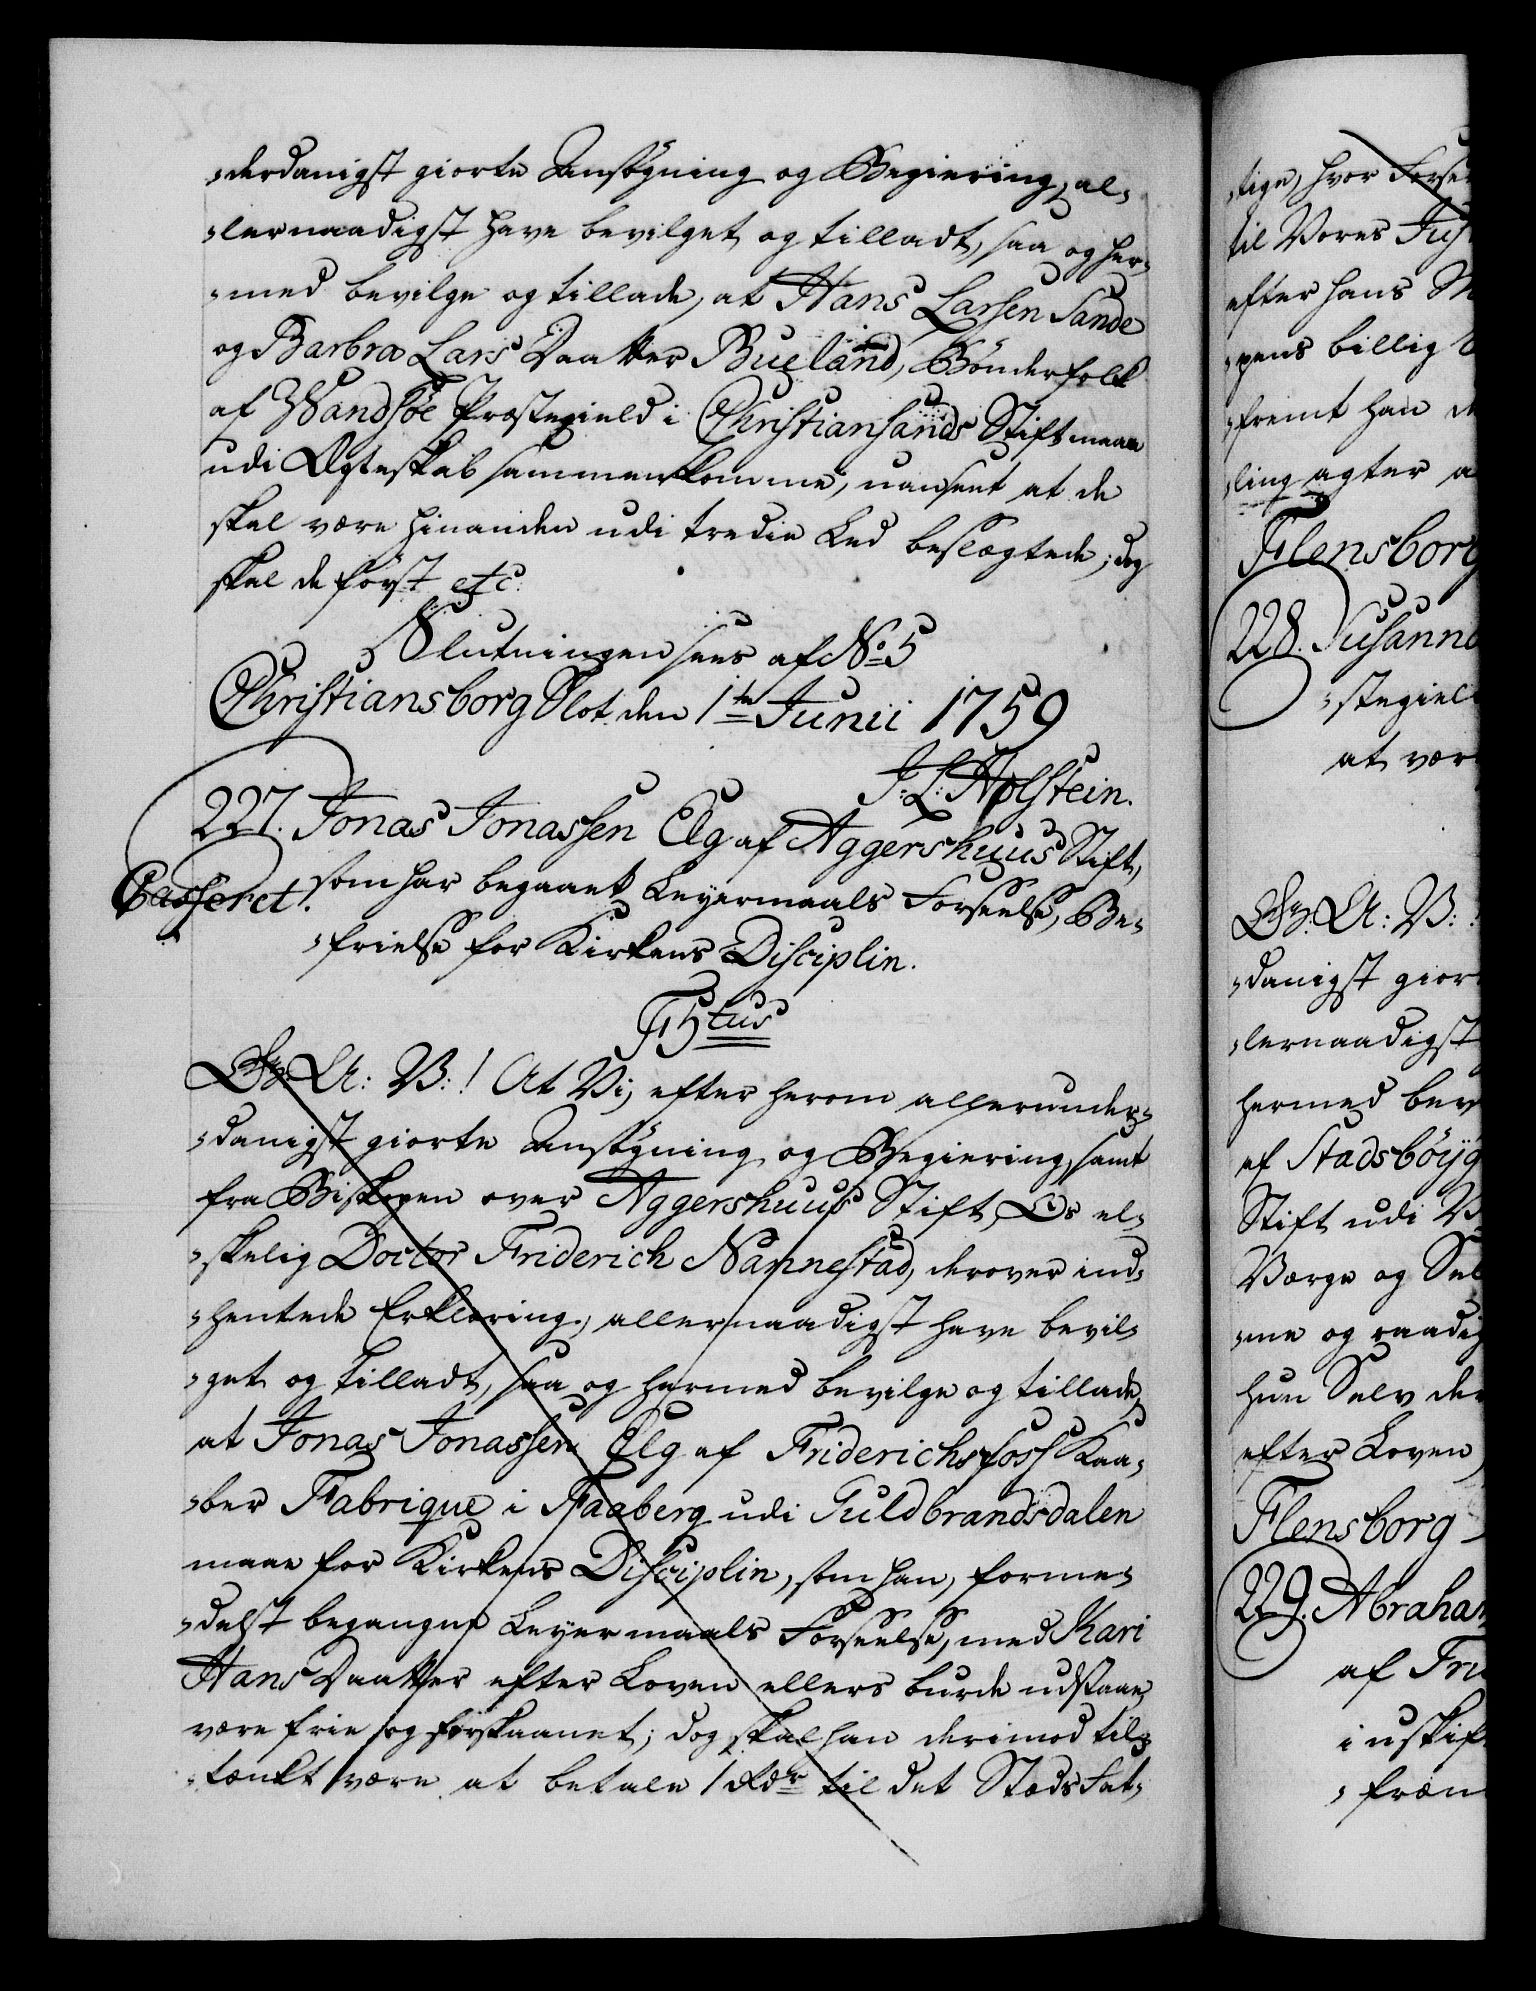 -derdanigst giorte Ansögning og Begiering, al-
-lernaadigst have bevilget og tilladt, saa og her-
-med bevilge og tillade, at Hans Larsen Sande
og Barbra Lars Daatter Bueland, Bönderfolk
af Wandsöe Præstegield i Christiansands Stift maae
udi Ægteskab sammenkomme, uanseet at de
skal være hinanden udi tredie Led beslægtede; dog
skal de först etc.
Slutningen sees af No 5
Christiansborg Slot den 1te Junii 1759
J: L: Holstein.
227. Jonas Jonassen Elg af Aggershuus Stift,
Casseret. som har begaaet Leyermaals Forseelse, Be-
-frielse for Kirkens Disciplin.
F5tus
Gr: A: V: ! At Vi, efter herom allerunder-
-danigst giorte Ansögning og Begiering, samt
fra Biskopen over Aggershuus Stift, Os el-
-skelig Doctor Friderich Nannestad, derover ind-
-hentede Erklæring, allernaadigst have bevil-
-get og tilladt, saa og hermed bevilge og tillade,
at Jonas Jonassen Elg af Friderichsfoss Kaa-
-ber Fabrique i Faaberg udi Guldbrandsdalen
maae for Kirkens Disciplin, som han, forme-
-delst begangne Leyermaals Forseelse, med Kari
Hans Daatter efter Loven ellers burde udstaae,
være frie og forskaanet; dog skal han derimod til-
-tænkt være at betale 1 Rdr til det Stæds Fat-
-tige, hvor Forse
til Vores Jus
efter hans M
-pens billig
-fremt han de
-ling agter a
Flensborg
228. Susanne
-stegield
at vær
Gr: A: V: !
-danigst gior
-lernaadigst
hermed bev
af Stadsböyg
Stift udi
Værge og Sel
-me og raadig
hun Selv der
efter Loven
Flensborg
229. Abraham
af Fri
i uskif
-fræn